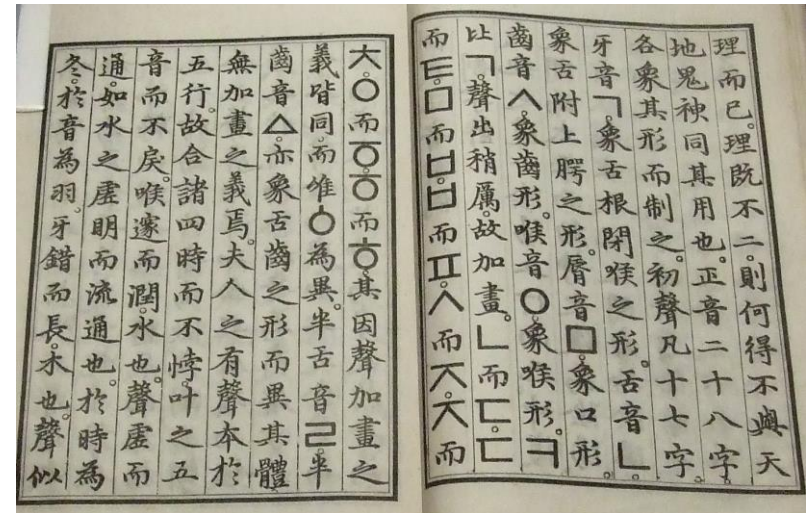 理而已。理既不二。則何得不與天
地鬼神同其用也。正音二十八字。
各象其形而制之。初聲凡十七字。
牙音ㄱ。象舌根閉喉之形。舌音ㄴ。
象舌附上腭之形。脣音ㅁ。象口形。
齒音ㅅ。象齒形。喉音ㅇ。象喉形。ㅋ
比ㄱ。聲出稍厲。故加畫。ㄴ而ㄷ。ㄷ
而ㅌ。ㅁ而ㅂ。ㅂ而ㅍ。ㅅ而ㅈ。ㅈ而
ㅊ。ㅇ而ㆆ。ㆆ而ㅎ。其因聲加畫之
義皆同。而唯ㆁ為異。半舌音ㄹ。半
齒音ㅿ。亦象舌齒之形而異其體。
無加畫之義焉。夫人之有聲本於
五行。故合諸四時而不悖。叶之五
音而不戾。喉邃而潤。水也。聲虛而
通。如水之虛明而流通也。於時為
冬。於音為羽。牙錯而長。木也。聲似